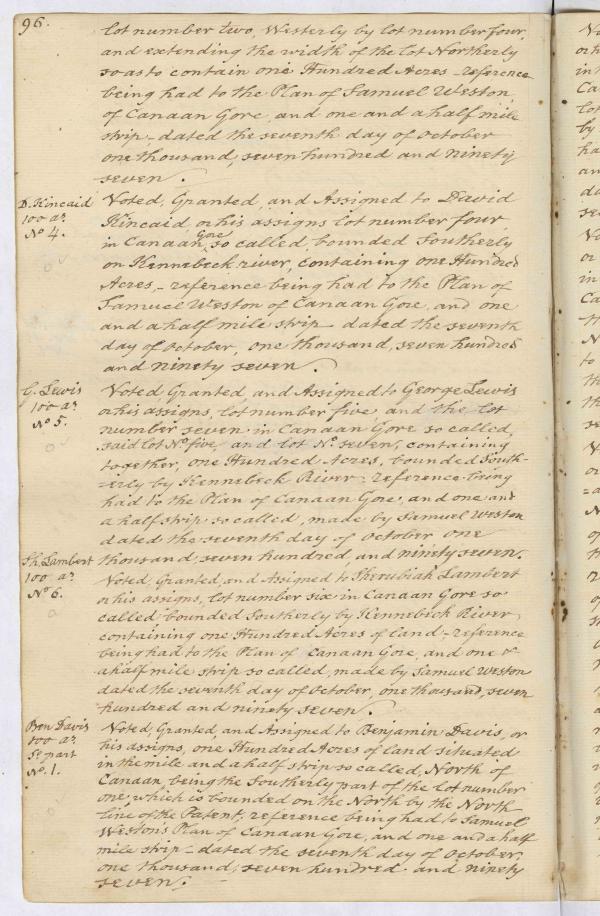 96.
lot number two, Westerly by lot number four,
and extending the width of the lot Northerly
so as to contain one Hundred Acres - reference
being had to the Plan of Samuel Weston,
of Canaan Gore, and one and a half mile
strip, - dated the seventh day of October
one thousand, seven hundred and ninety
seven.
D. Kincaid
100 as
No 4.
Voted, Granted, and Assigned to David
Kincaid, or his assigns lot number four
in Canaan Gore, so called, bounded Southerly
on Kennebeck river, containing one Hundred
Acres, - reference being had to the Plan of
Samuel Weston of Canaan Gore, and one
and a half mile strip - dated the seventh
day of October, one thousand, seven hundred
and ninety seven.
G. Lewis
100 as
No 5.
Voted, Granted, and Assigned to George Lewis
or his assigns, lot number five and the lot
number seven in Canaan Gore so called,
said lot No. five, and lot No. seven, containing
together, one Hundred Acres, bounded South-
-erly by Kennebeck River - reference being
had to the Plan of Canaan Gore, and one and
a half strip so called, made by Samuel Weston
dated the seventh day of October one
thousand, seven hundred, and ninety seven.
Sh. Lambert
100 as
No 6.
Voted, Granted, and Assigned to Sherubiah Lambert
or his assigns, lot number six in Canaan Gore so
called bounded Southerly by Kennebeck River,
containing one Hundred Acres of land - reference
being had to the Plan of Canaan Gore, and one &
a half mile strip so called, made by Samuel Weston
dated the seventh day of October, one thousand, seven
hundred and ninety seven.
Ben Davis
100 as
So part
No. 1.
Voted, Granted, and Assigned to Benjamin Davis, or
his assigns, one Hundred Acres of land situated
in the mile and a half strip so called, North of
Canaan, being the Southerly part of the lot number
one, which is bounded on the North by the North
line of the Patent, reference being had to Samuel
Weston's Plan of Canaan Gore, and one and a half
mile strip - dated the seventh day of October,
one thousand, seven hundred and ninety
seven.